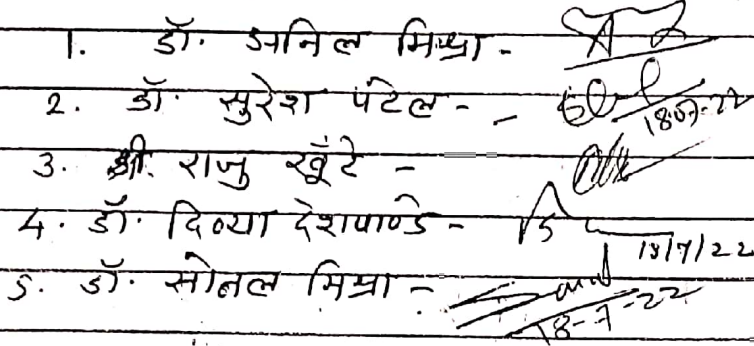 1. डॉ. अनिल मिश्रा -
2. डॉ. सुरेश पटेल - - 18.07.22
3. श्री. राजु खूँटे -
4. डॉ. दिव्या देशपाण्डे - 18/7/22
5. डॉ. सोनल मिश्रा - 18-7-22